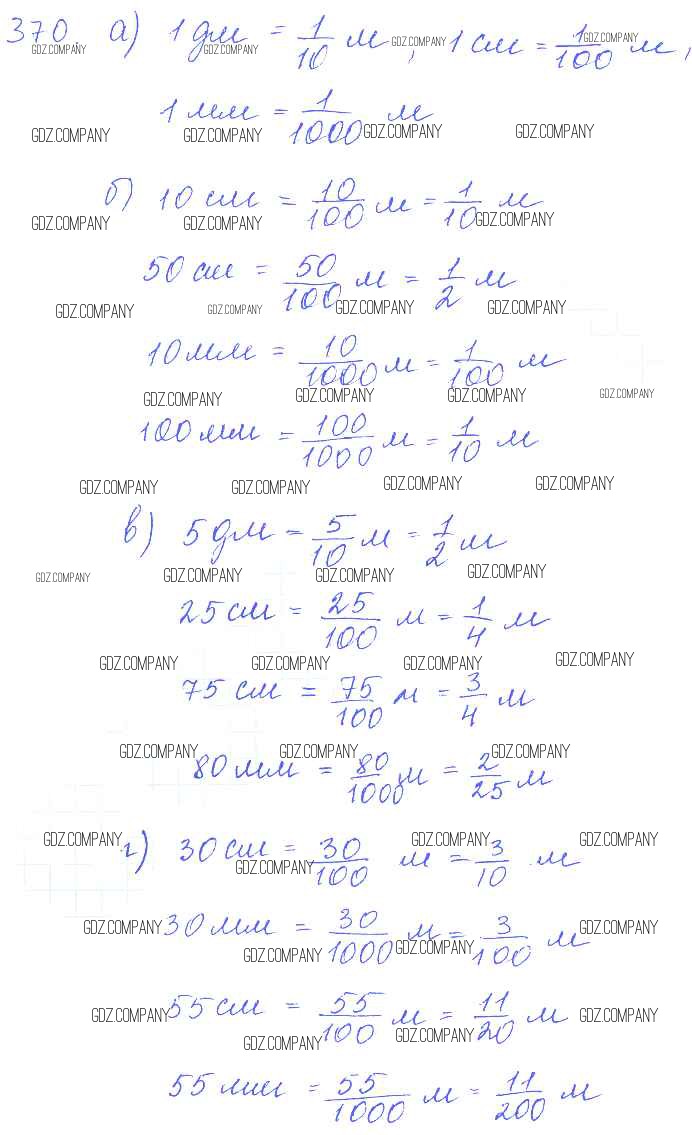 370. а) 1 дм = 1/10 м, 1 см = 1/100 м,
GDZ.COMPANY GDZ.COMPANY GDZ.COMPANY GDZ.COMPANY
1 мм = 1/1000 м
GDZ.COMPANY GDZ.COMPANY GDZ.COMPANY GDZ.COMPANY
б) 10 см = 10/100 м = 1/10 м
GDZ.COMPANY GDZ.COMPANY GDZ.COMPANY
50 см = 50/100 м = 1/2 м
GDZ.COMPANY GDZ.COMPANY GDZ.COMPANY GDZ.COMPANY
10 мм = 10/1000 м = 1/100 м
GDZ.COMPANY GDZ.COMPANY GDZ.COMPANY GDZ.COMPANY
100 мм = 100/1000 м = 1/10 м
GDZ.COMPANY GDZ.COMPANY GDZ.COMPANY GDZ.COMPANY
в) 5 дм = 5/10 м = 1/2 м
GDZ.COMPANY GDZ.COMPANY GDZ.COMPANY GDZ.COMPANY
25 см = 25/100 м = 1/4 м
GDZ.COMPANY GDZ.COMPANY GDZ.COMPANY GDZ.COMPANY
75 см = 75/100 м = 3/4 м
GDZ.COMPANY GDZ.COMPANY GDZ.COMPANY
80 мм = 80/1000 м = 2/25 м
GDZ.COMPANY GDZ.COMPANY GDZ.COMPANY
г) 30 см = 30/100 м = 3/10 м
GDZ.COMPANY
GDZ.COMPANY GDZ.COMPANY
30 мм = 30/1000 м = 3/100 м
GDZ.COMPANY GDZ.COMPANY
GDZ.COMPANY GDZ.COMPANY
55 см = 55/100 м = 11/20 м
GDZ.COMPANY GDZ.COMPANY
55 мм = 55/1000 м = 11/200 м